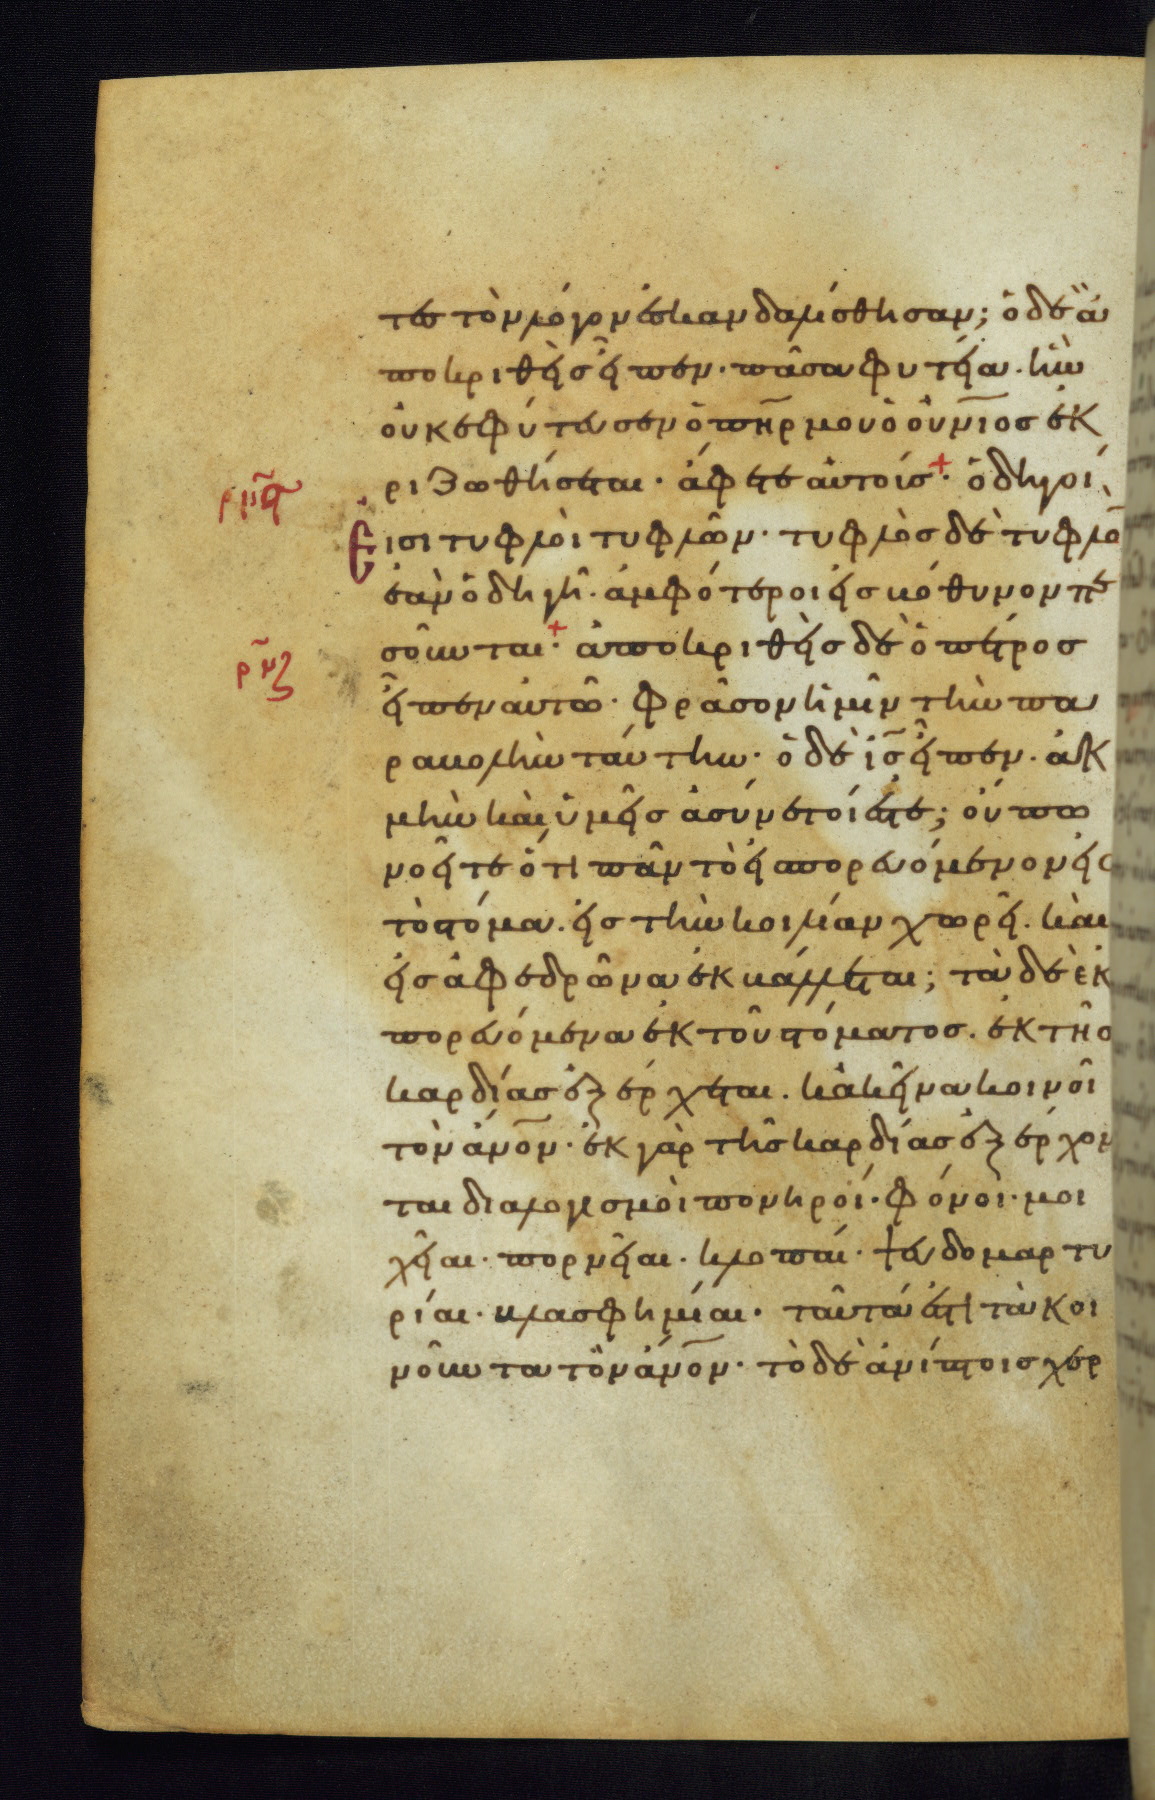 τες τὸν λόγον ἐσκανδαλίσθησαν; ὁ δὲ ἀ
ποκριθεὶς εἶπεν· πᾶσα φυτεία· ἣν
οὐκ ἐφύτευσεν ὁ πη̅ρ μου ὁ οὐν̅ιος ἐκ
ριζωθήσεται· ἄφετε αὐτοίς·+ ὁδηγοί
ρμς
Εἰσι τυφλοὶ τυφλῶν· τυφλὸς δὲ τυφλὸ̅
ἐὰν ὁδηγῆ· ἀμφότεροι εἰς βόθυνον πε
σοῦνται·+ ἀποκριθεὶς δὲ ὁ πέτρος
ρμζ
εἶπεν αὐτῶ· φρᾶσον ἡμῖν τὴν πα
ραβολὴν ταύτην· ὁ δὲ ι̅ς εἶπεν· ἀκ
μὴν καὶ ὑμεῖς ἀσύνετοί ἐστε; οὔπω
νοεῖτε ὅτι πᾶν τὸ εἰσπορευόμενον εἰς
τὸ στόμα· εἰς τὴν κοιλίαν χωρεῖ· καὶ
εἰς ἀφεδρῶνα ἐκβάλλεται; τὰ δὲ ἐκ
πορευόμενα ἐκ τοῦ στόματος· ἐκ τῆς
καρδίας ἐξέρχεται· κἀκεῖνα κοινοῖ
τὸν ἄν̅ον· ἐκ γὰρ τῆς καρδίας ἐξέρχον
ται διαλογισμοὶ πονηροί· φόνοι· μοι
χεῖαι· πορνεῖαι· κλοπαί· ψευδομαρτυ
ρίαι· βλασφημίαι· ταῦτά ἐστι τὰ κοι
νοῦντα τὸν ἄν̅ον· τὸ δὲ ἀνίπτοις χερ